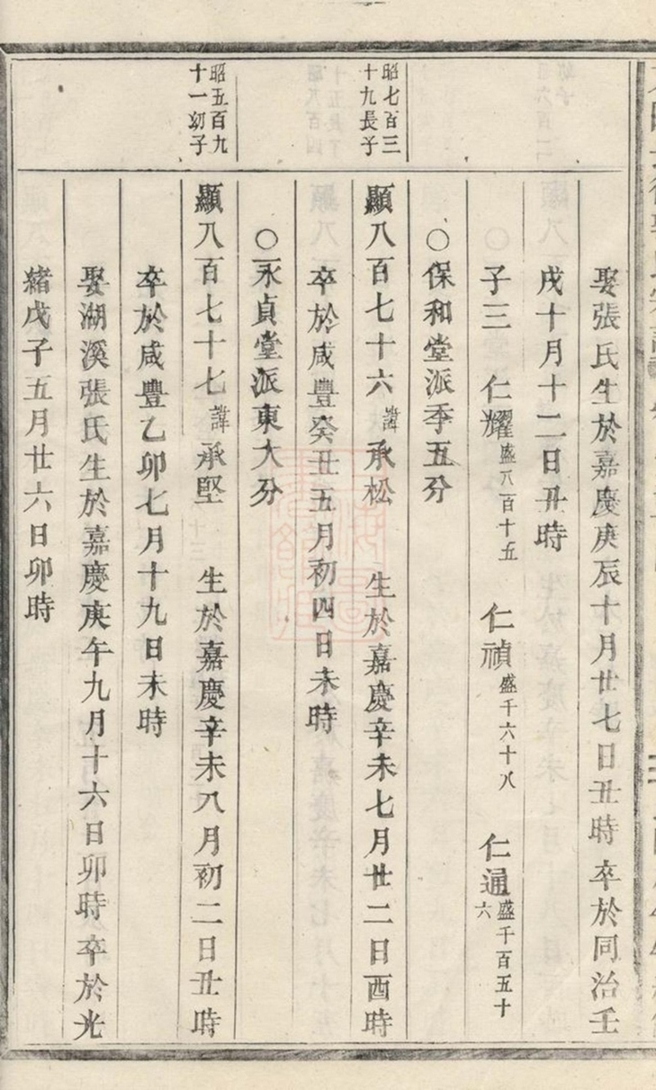 娶張氏生於嘉慶庚辰十月廿七日丑時卒於同治壬
戌十月十二日丑時
子三 仁耀盛八百十五 仁禎盛千六十八 仁通盛千百五十六
○保和堂派季五分
昭七百三十九長子
顯八百七十六諱承松 生於嘉慶辛未七月廿二日酉時
卒於咸豐癸丑五月初四日未時
○永貞堂派東大分
昭五百九十一幼子
顯八百七十七諱承堅 生於嘉慶辛未八月初二日丑時
卒於咸豐乙卯七月十九日未時
娶湖溪張氏生於嘉慶庚午九月十六日卯時卒於光
緒戊子五月廿六日卯時